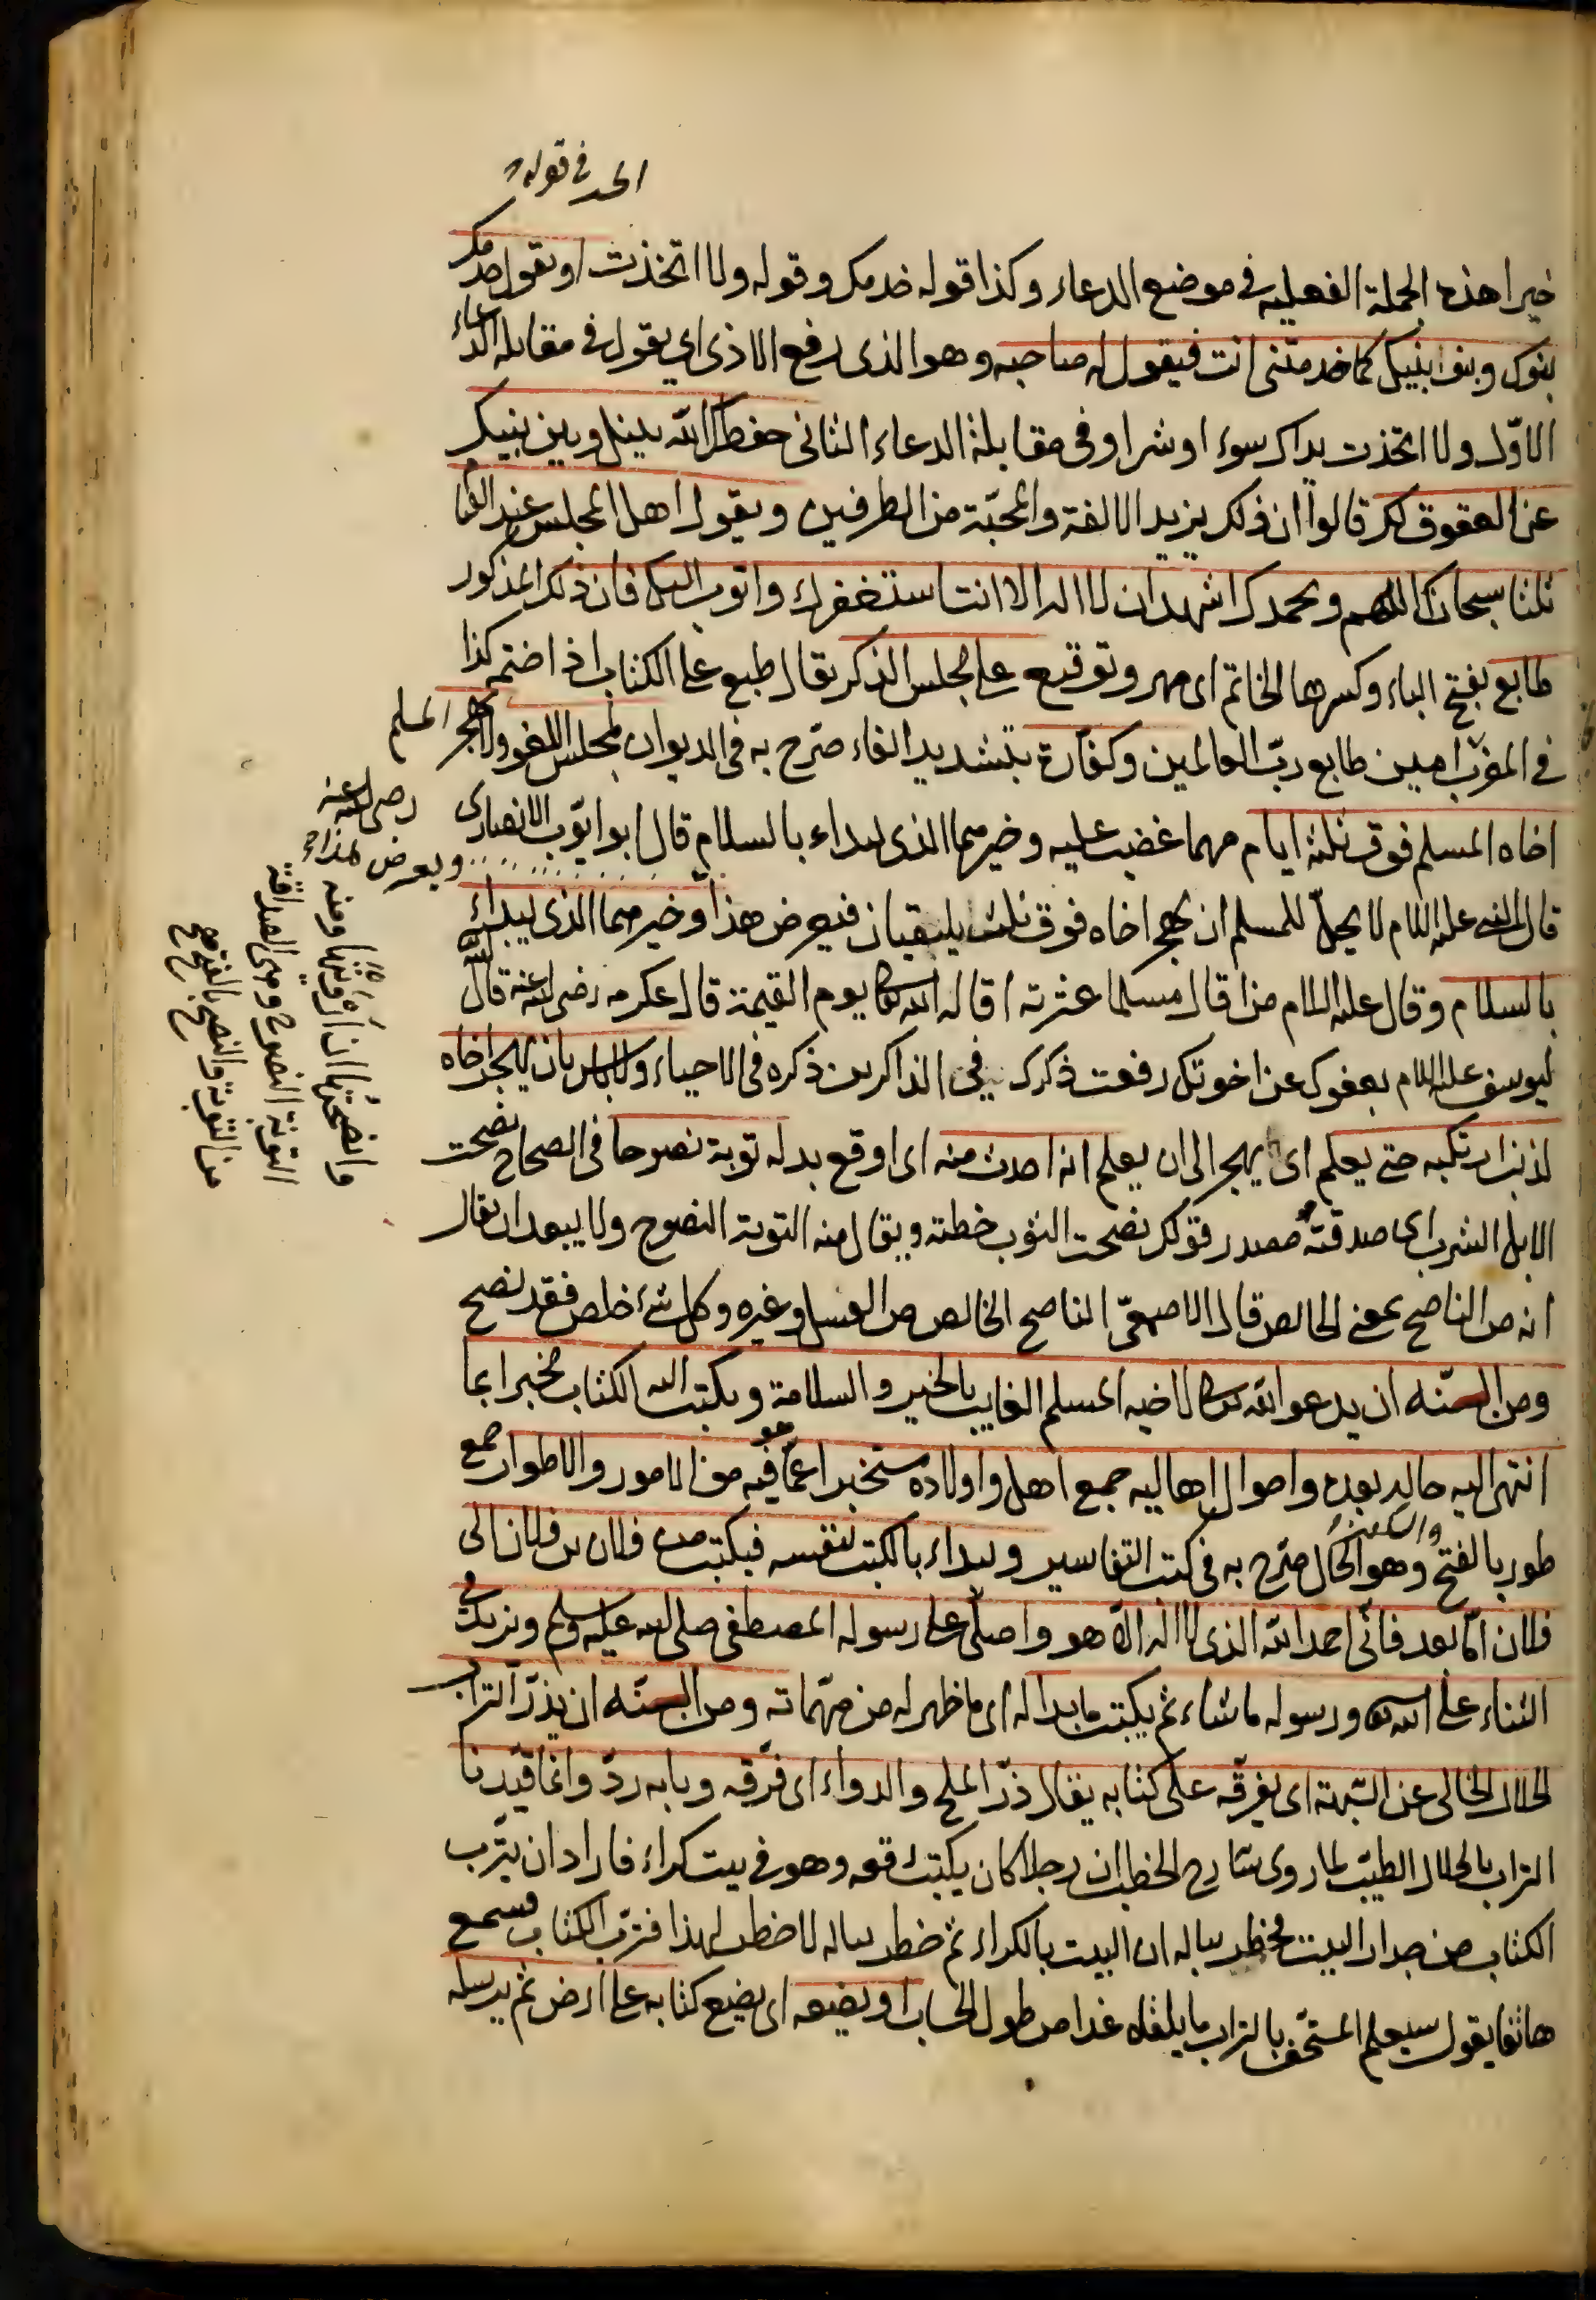 الحد في قوله
خيرا هذه الجملة الفعلية في موضع الدعاء وكذا قوله خدمك وقوله ولا اتخذت او يقول خدمك
بنوك وبنوا بنيك كما خدمتنى انت فيقول له صاحبه وهو الذى رفع الاذى اي يقول في مقابلة الدعاء
الاوّل ولا اتخذت يداك سوء او شرا وفى مقابلة الدعاء الثانى حفظك الله بينك وبين بنيك
عن العقوق لك قالوا ان ذلك يزيد الالفة والمحبّة من الطرفين ويقول اهل المجلس عند القيا
ثلثا سبحانك اللهم وبحمدك اشهد ان لا اله الا انت استغفرك واتوب اليك فان ذلك المذكور
طابع بفتح الباء وكسرها الخاتم اى مهر وتوقيع على مجلس الذكر يقال طبع على الكتاب اذا ختم كذا
في المغرب امين طابع ربّ العالمين وكفّارة بتشديد الفاء صرّح به فى الديوان لمجلس اللغو ولا يهجر المسلم
اخاه المسلم فوق ثلثة ايام مهما غضب عليه وخيرهما الذى يبداء بالسلام قال ابو ايّوب الانصارى رضى الله عنه
قال النبى عليه السلام لا يحلّ للمسلم ان يهجر اخاه فوق ثلث يلتقيان فيعرض هذا ويعرض هذا وخيرهما الذى يبداء
بالسلام وقال عليه السلام من اقال مسلما عثرته اقاله الله تعالى يوم القيمة قال عكرمه رضى الله عنه قال الله
ليوسف عليه السلام بعفوك عن اخوتك رفعت ذكرك في الذاكرين ذكره فى الاحياء ولا باس بان يهجر اخاه
لذنب ارتكبه حتى يعلم اى يهجر الى ان يعلم انه احدث منه اى اوقع بدله توبة نصوحا فى الصحاح نصحت
الابل الشرب اى صدقته مصدر قولك نصحت الثوب خطته ويقال منه التوبة النصوح ولا يبعد ان يقال
انه من الناصح بمعنى الخالص قال الاصمعىّ الناصح الخالص من العسل وغيره وكل شئ خلص فقد نصح
ومن السنّه ان يدعو الله تعالى لاخيه المسلم الغايب بالخير والسلامة ويكتب اليه الكتاب مخبرا بما
انتهى اليه حاله بعده واحوال اهاليه جمع اهل واولاده مستخبرا عمّا هو فيه من الامور والاطوار جمع
طور بالفتح والسكون وهو الحال صرّح به فى كتب التفاسير ويبداء بالكتب لنفسه فيكتب من فلان بن فلان الى
فلان امّا بعد فانّى احمد الله الذى لا اله الاّ هو واصلّى على رسوله المصطفى صلى الله عليه وسلم ويزيد فى
الثناء على الله تعالى ورسوله ما شاء ثم يكتب ما بدا له اى ما ظهر له من مهمّاته ومن السنّه ان يذرّ التراب
الحلال الخالى عن الشبهة اى يفرّقه على كتابه يقال ذرّ الملح والدواء اى فرّقه وبابه ردّ وانما قيّدنا
التراب بالحلال الطيّب لما روى شارح الخطب ان رجلا كان يكتب رقعه وهو في بيت كراء فاراد ان يترب
الكتاب من جدار البيت فخطر بباله ان البيت بالكراء ثم خطر بباله لا خطر لهذا فترّب الكتاب فسمع
هاتفا يقول سيعلم المستخفّ بالتراب ما يلقاه غدا من طول الحساب او يضعه اى يضع كتابه على الارض ثم يرسله
وانصحتها ان ارويتها ومنه
التوبة النصوح وهى الصادقة
من التوبة والنصح بالفتح